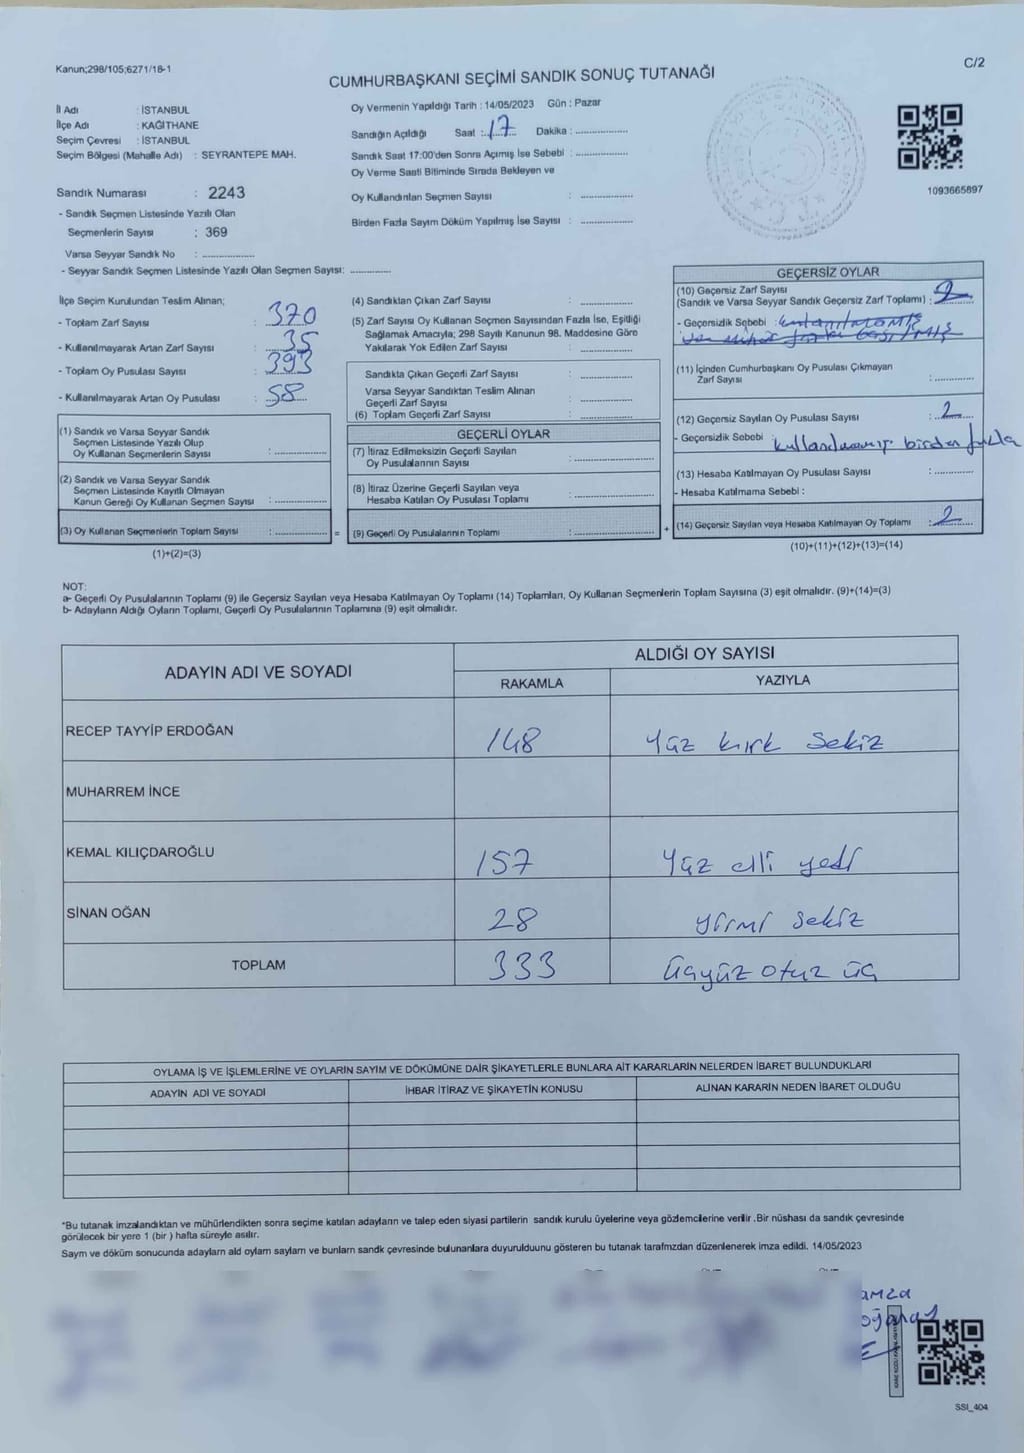 Kanun;298/105;6271/18-1
C/2
CUMHURBAŞKANI SEÇİMİ SANDIK SONUÇ TUTANAĞI
İl Adı : İSTANBUL
İlçe Adı : KAĞITHANE
Seçim Çevresi : İSTANBUL
Seçim Bölgesi (Mahalle Adı) : SEYRANTEPE MAH.
Sandık Numarası : 2243
- Sandık Seçmen Listesinde Yazılı Olan
Seçmenlerin Sayısı : 369
Varsa Seyyar Sandık No : ..................
- Seyyar Sandık Seçmen Listesinde Yazılı Olan Seçmen Sayısı: .............
Oy Vermenin Yapıldığı Tarih : 14/05/2023 Gün : Pazar
Sandığın Açıldığı Saat : 17 Dakika : ..................
Sandık Saat 17:00'den Sonra Açımış İse Sebebi : ..................
Oy Verme Saati Bitiminde Sırada Bekleyen ve
Oy Kullandırılan Seçmen Sayısı : ..................
Birden Fazla Sayım Döküm Yapılmış İse Sayısı : ..................
1093665897
İlçe Seçim Kurulundan Teslim Alınan;
- Toplam Zarf Sayısı : 370
- Kullanılmayarak Artan Zarf Sayısı : 35
- Toplam Oy Pusulası Sayısı : 393
- Kullanılmayarak Artan Oy Pusulası : 58
(1) Sandık ve Varsa Seyyar Sandık
Seçmen Listesinde Yazılı Olup
Oy Kullanan Seçmenlerin Sayısı : ..................
(2) Sandık ve Varsa Seyyar Sandık
Seçmen Listesinde Kayıtlı Olmayan
Kanun Gereği Oy Kullanan Seçmen Sayısı : ..................
(3) Oy Kullanan Seçmenlerin Toplam Sayısı : ..................
(1)+(2)=(3)
=
(4) Sandıktan Çıkan Zarf Sayısı : ..................
(5) Zarf Sayısı Oy Kullanan Seçmen Sayısından Fazla İse, Eşitliği
Sağlamak Amacıyla; 298 Sayılı Kanunun 98. Maddesine Göre
Yakılarak Yok Edilen Zarf Sayısı : ..................
Sandıkta Çıkan Geçerli Zarf Sayısı : ..................
Varsa Seyyar Sandıktan Teslim Alınan
Geçerli Zarf Sayısı : ..................
(6) Toplam Geçerli Zarf Sayısı : ..................
GEÇERLİ OYLAR
(7) İtiraz Edilmeksizin Geçerli Sayılan
Oy Pusulalarının Sayısı : ..................
(8) İtiraz Üzerine Geçerli Sayılan veya
Hesaba Katılan Oy Pusulası Toplamı : ..................
(9) Geçerli Oy Pusulalarının Toplamı : ..................
+
GEÇERSİZ OYLAR
(10) Geçersiz Zarf Sayısı
(Sandık ve Varsa Seyyar Sandık Geçersiz Zarf Toplamı) : 2
- Geçersizlik Sebebi :
(11) İçinden Cumhurbaşkanı Oy Pusulası Çıkmayan
Zarf Sayısı : ..................
(12) Geçersiz Sayılan Oy Pusulası Sayısı : 2
- Geçersizlik Sebebi : kullanılmamış birden fazla
(13) Hesaba Katılmayan Oy Pusulası Sayısı : ..................
- Hesaba Katılmama Sebebi :
(14) Geçersiz Sayılan veya Hesaba Katılmayan Oy Toplamı : 2
(10)+(11)+(12)+(13)=(14)
NOT:
a- Geçerli Oy Pusulalarının Toplamı (9) ile Geçersiz Sayılan veya Hesaba Katılmayan Oy Toplamı (14) Toplamları, Oy Kullanan Seçmenlerin Toplam Sayısına (3) eşit olmalıdır. (9)+(14)=(3)
b- Adayların Aldığı Oyların Toplamı, Geçerli Oy Pusulalarının Toplamına (9) eşit olmalıdır.
ADAYIN ADI VE SOYADI
ALDIĞI OY SAYISI
RAKAMLA YAZIYLA
RECEP TAYYİP ERDOĞAN 148 Yüz kırk sekiz
MUHARREM İNCE
KEMAL KILIÇDAROĞLU 157 Yüz elli yedi
SİNAN OĞAN 28 yirmi sekiz
TOPLAM 333 üçyüz otuz üç
OYLAMA İŞ VE İŞLEMLERİNE VE OYLARIN SAYIM VE DÖKÜMÜNE DAİR ŞİKAYETLERLE BUNLARA AİT KARARLARIN NELERDEN İBARET BULUNDUKLARI
ADAYIN ADI VE SOYADI İHBAR İTİRAZ VE ŞİKAYETİN KONUSU ALINAN KARARIN NEDEN İBARET OLDUĞU
*Bu tutanak imzalandıktan ve mühürlendikten sonra seçime katılan adayların ve talep eden siyasi partilerin sandık kurulu üyelerine veya gözlemcilerine verilir .Bir nüshası da sandık çevresinde
görülecek bir yere 1 (bir ) hafta süreyle asılır.
Saym ve döküm sonucunda adaylarn ald oylarn saylarn ve bunlarn sandk çevresinde bulunanlara duyurulduunu gösteren bu tutanak tarafmzdan düzenlenerek imza edildi. 14/05/2023
SSI_404